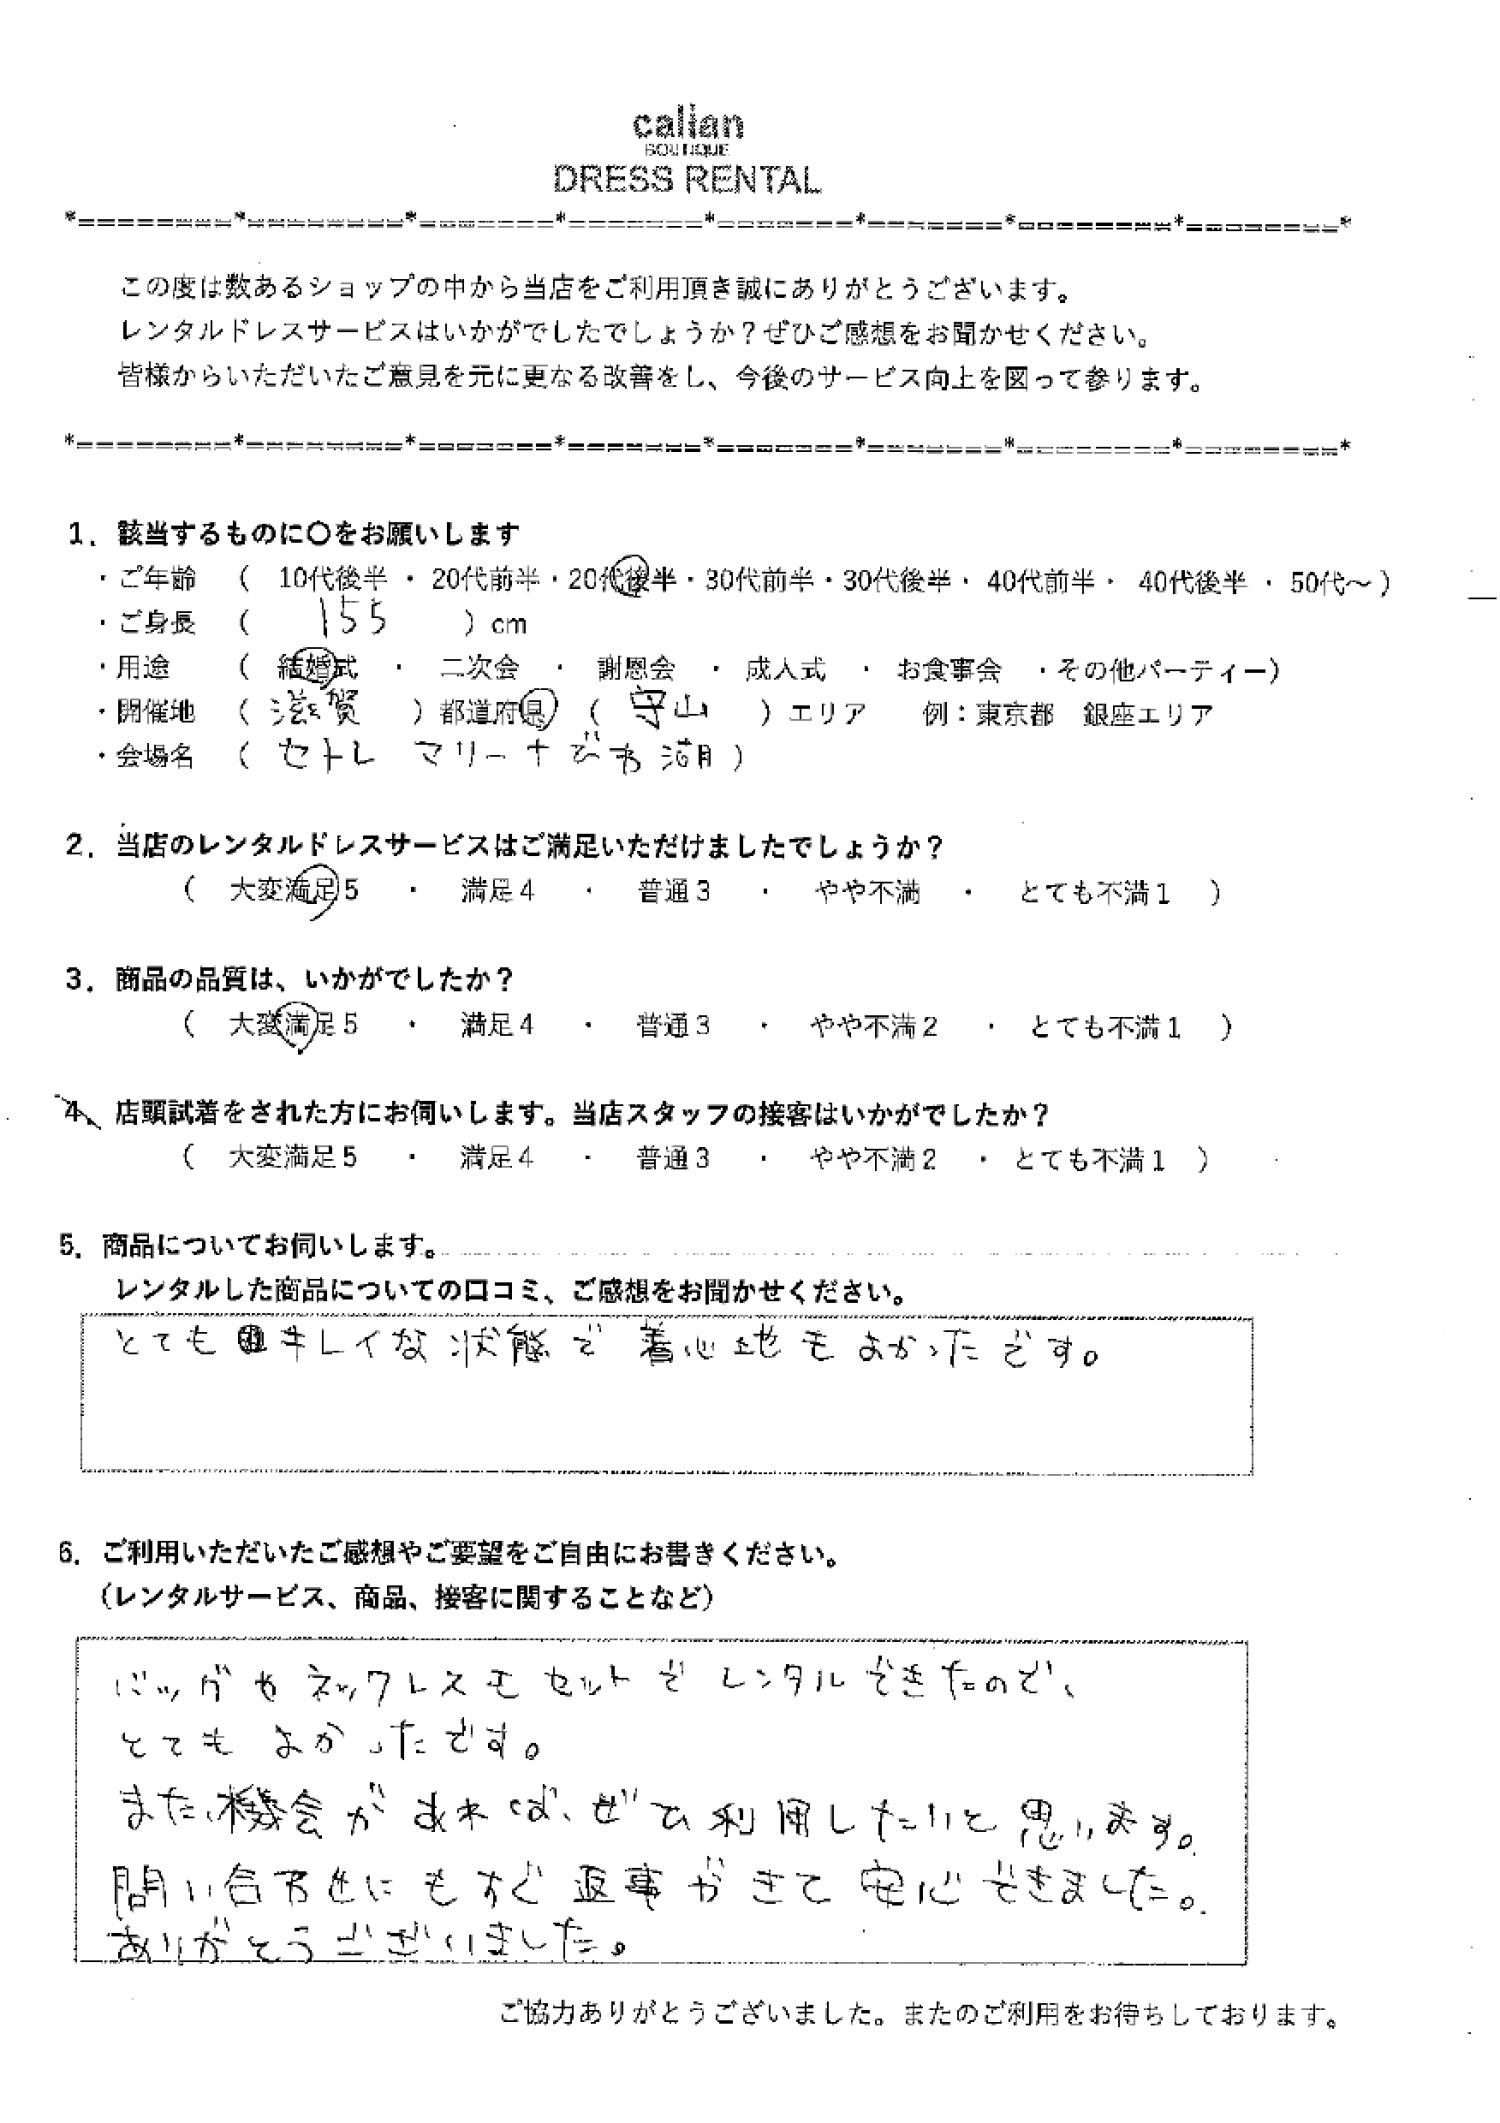 calian
BOUTIQUE
DRESS RENTAL
*========*========*=======*=======*=======*=======*========*========*
この度は数あるショップの中から当店をご利用頂き誠にありがとうございます。
レンタルドレスサービスはいかがでしたでしょうか？ぜひご感想をお聞かせください。
皆様からいただいたご意見を元に更なる改善をし、今後のサービス向上を図って参ります。
*========*========*=======*=======*=======*=======*========*========*
1．該当するものに〇をお願いします
・ご年齢 （ 10代後半 ・ 20代前半・20代後半・30代前半・30代後半・ 40代前半・ 40代後半 ・ 50代～ ）
・ご身長 （ 155 ）cm
・用途 （ 結婚式 ・ 二次会 ・ 謝恩会 ・ 成人式 ・ お食事会 ・その他パーティー）
・開催地 （ 滋賀 ）都道府県（ 守山 ）エリア 例：東京都 銀座エリア
・会場名 （ セトレ マリーナびわ湖 ）
2．当店のレンタルドレスサービスはご満足いただけましたでしょうか？
（ 大変満足5 ・ 満足4 ・ 普通3 ・ やや不満 ・ とても不満1 ）
3．商品の品質は、いかがでしたか？
（ 大変満足5 ・ 満足4 ・ 普通3 ・ やや不満2 ・ とても不満1 ）
4、店頭試着をされた方にお伺いします。当店スタッフの接客はいかがでしたか？
（ 大変満足5 ・ 満足4 ・ 普通3 ・ やや不満2 ・ とても不満1 ）
5．商品についてお伺いします。
レンタルした商品についての口コミ、ご感想をお聞かせください。
とてもキレイな状態で着心地もよかったです。
6．ご利用いただいたご感想やご要望をご自由にお書きください。
（レンタルサービス、商品、接客に関することなど）
バッグやネックレスもセットでレンタルできたので、
とてもよかったです。
また、機会があれば、ぜひ利用したいと思います。
問い合わせにもすぐ返事がきて安心できました。
ありがとうございました。
ご協力ありがとうございました。またのご利用をお待ちしております。